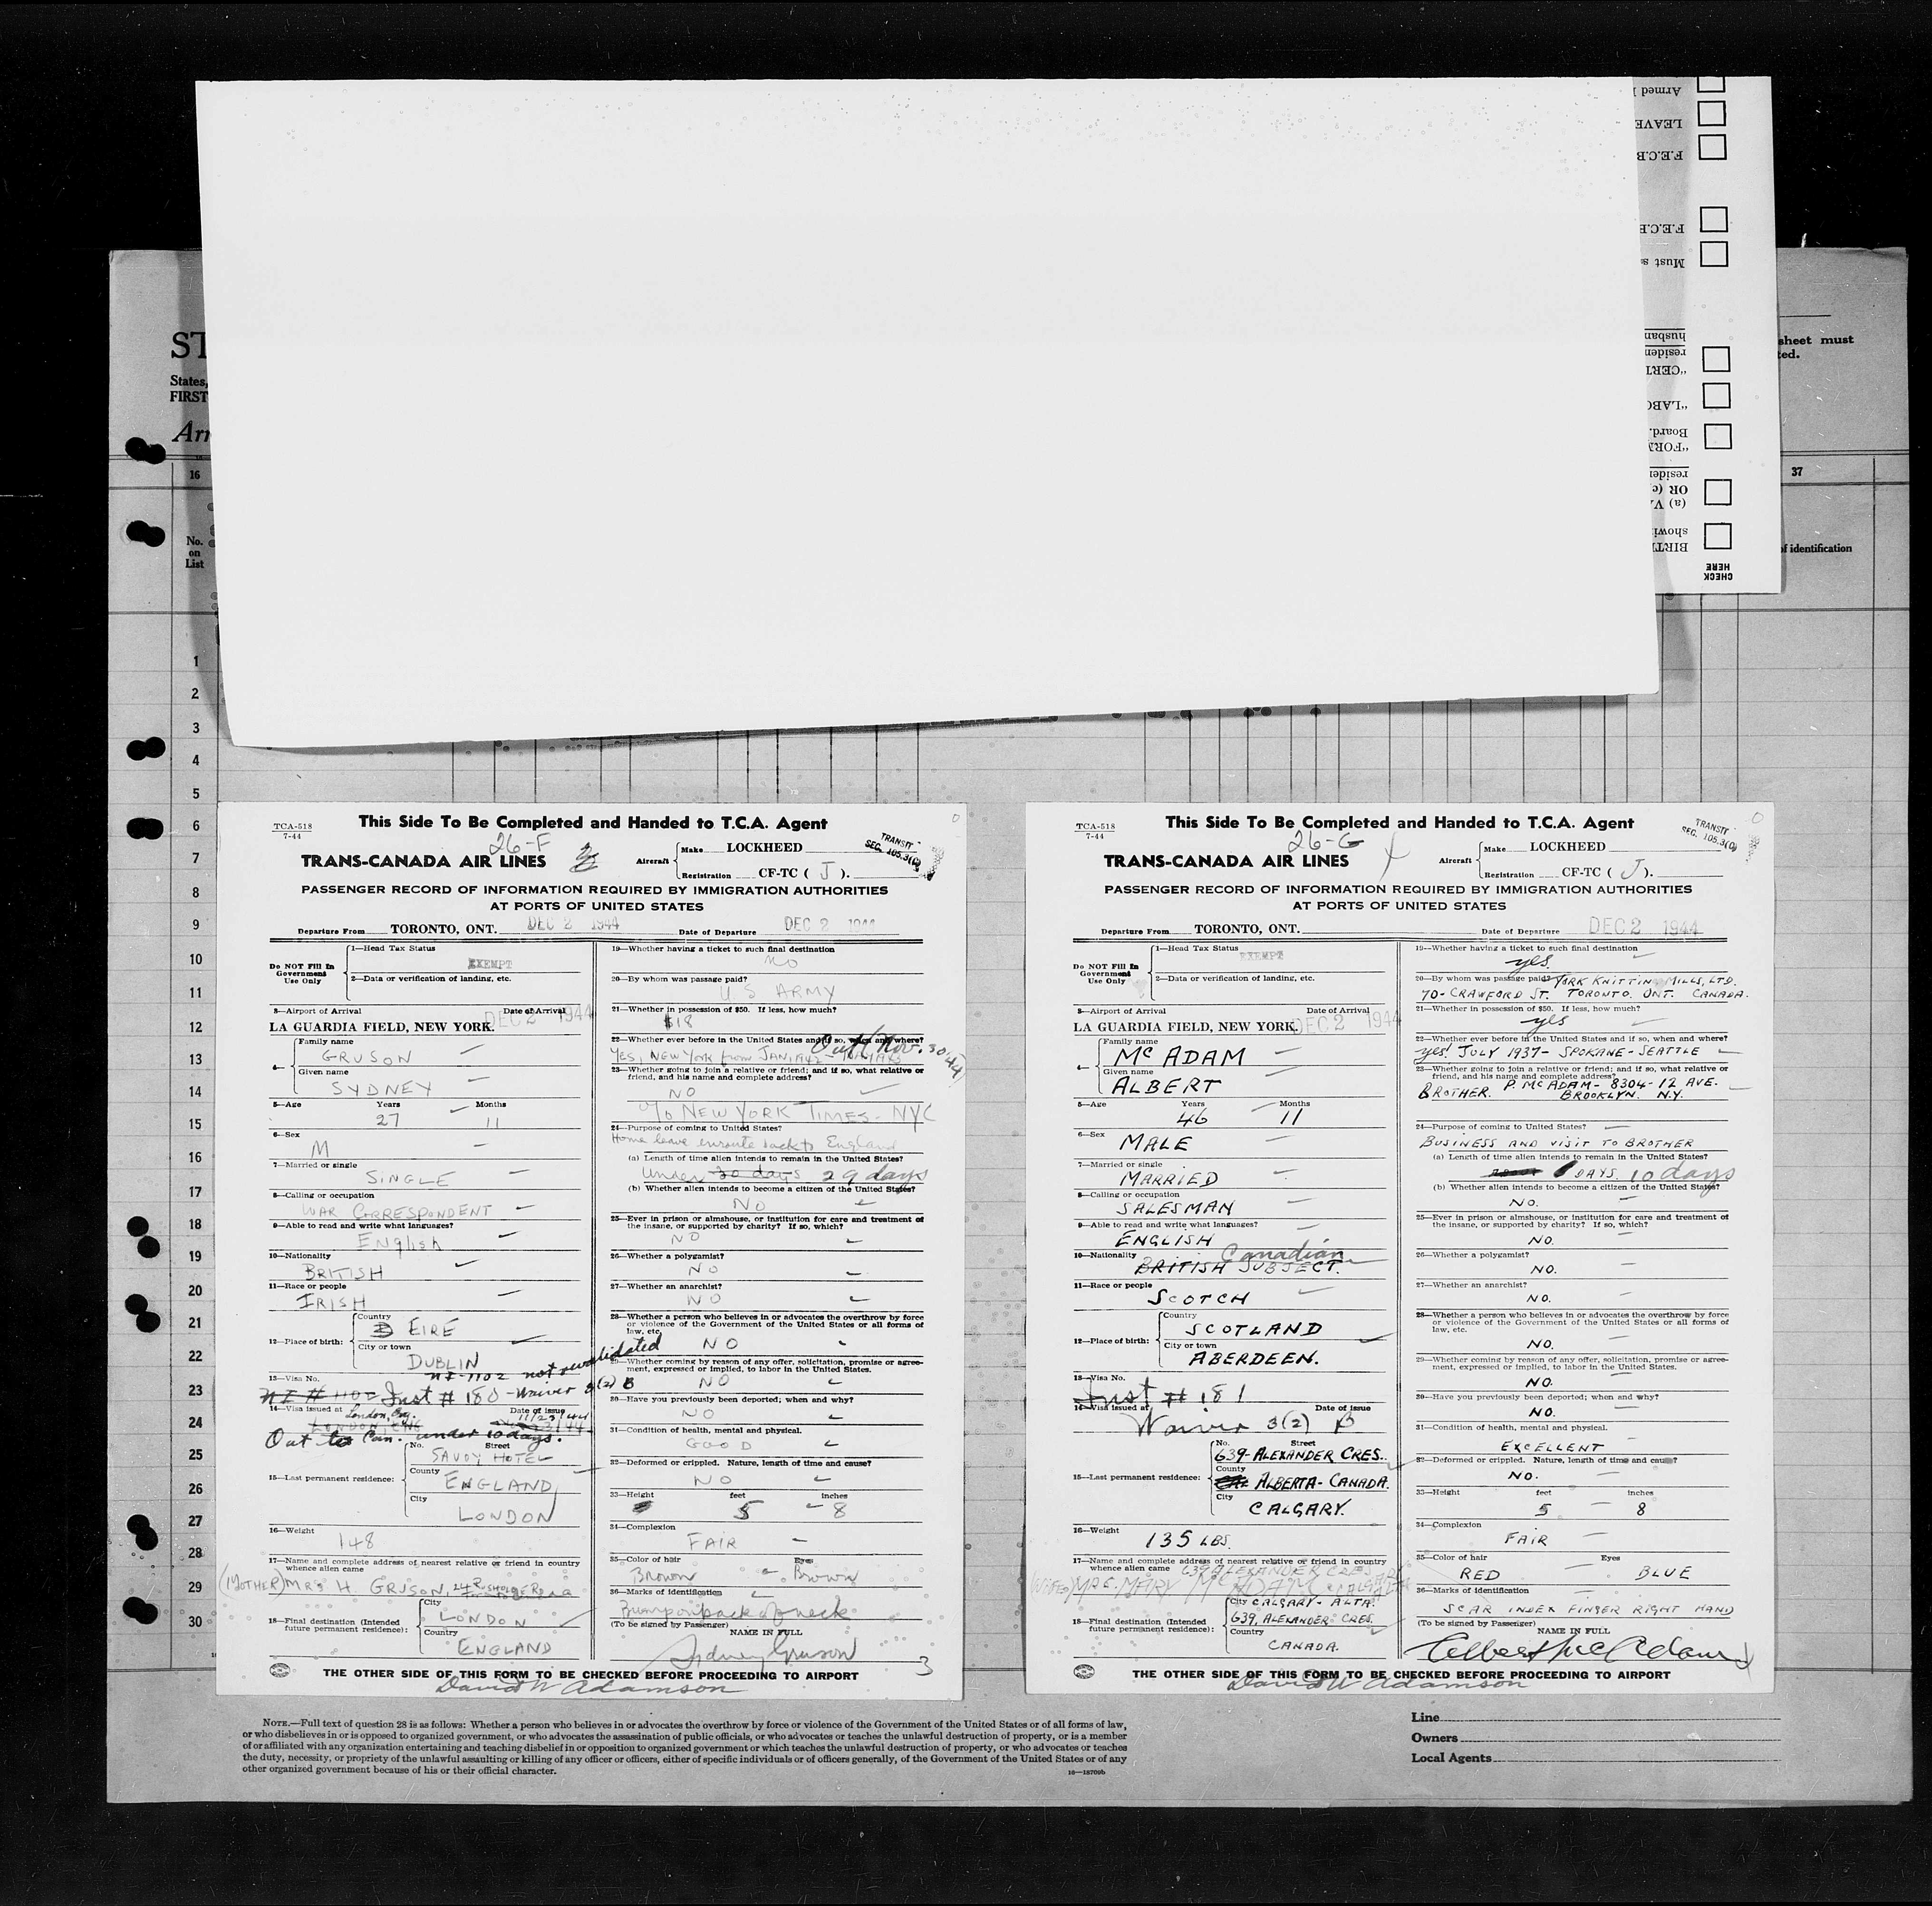 Armed
LEAVE
F.E.C.B
F.E.C.B
Must
husban
residen
"CERT
"LABO
Board.
"FORM
residen
OR (c)
(a) V
showi
BIRTH
CHECK
HERE
ST
States,
FIRST
Arr
sheet must
ted.
16
37
No.
on
List
of identification
1
2
3
4
5
6
7
8
9
10
11
12
13
14
15
16
17
18
19
20
21
22
23
24
25
26
27
28
29
30
TCA-518
7-44
This Side To Be Completed and Handed to T.C.A. Agent
26-F
TRANS-CANADA AIR LINES
Aircraft
Make LOCKHEED
Registration CF-TC ( J ).
TRANSIT
SEC. 105.3(C)
PASSENGER RECORD OF INFORMATION REQUIRED BY IMMIGRATION AUTHORITIES
AT PORTS OF UNITED STATES
Departure From TORONTO, ONT. DEC 2 1944 Date of Departure DEC 2 1944
Do NOT Fill In
Government
Use Only
1—Head Tax Status
EXEMPT
2—Data or verification of landing, etc.
3—Airport of Arrival Date of Arrival
LA GUARDIA FIELD, NEW YORK. DEC 2 1944
4—
Family name
GRUSON
Given name
SYDNEY
5—Age Years Months
27 11
6—Sex
M
7—Married or single
SINGLE
8—Calling or occupation
WAR CORRESPONDENT
9—Able to read and write what languages?
English
10—Nationality
BRITISH
11—Race or people
IRISH
12—Place of birth:
Country
EIRE
City or town
DUBLIN
NI-1102 not revalidated
13—Visa No.
NI # 1102 Inst # 180 - Waiver 3(2) B
14—Visa issued at Date of issue
London, Eng. 11/23/44
LONDON, ENG
Out to Can. under 10 days.
15—Last permanent residence:
No. Street
SAVOY HOTEL
County
ENGLAND
City
LONDON
16—Weight
148
17—Name and complete address of nearest relative or friend in country
whence alien came
(MOTHER) MRS H. GRUSON, 24 RUSHOLME RD
18—Final destination (Intended
future permanent residence):
City
LONDON
Country
ENGLAND
19—Whether having a ticket to such final destination
NO
20—By whom was passage paid?
U S ARMY
21—Whether in possession of $50. If less, how much?
$18
22—Whether ever before in the United States and if so, when and where?
Out Nov. 30/44
YES, NEW YORK from JAN, 1942
23—Whether going to join a relative or friend; and if so, what relative or
friend, and his name and complete address?
NO
c/o NEW YORK TIMES - NYC
24—Purpose of coming to United States?
Home leave enroute back to England
(a) Length of time alien intends to remain in the United States?
Under 30 days 29 days
(b) Whether alien intends to become a citizen of the United States?
NO
25—Ever in prison or almshouse, or institution for care and treatment of
the insane, or supported by charity? If so, which?
NO
26—Whether a polygamist?
NO
27—Whether an anarchist?
NO
28—Whether a person who believes in or advocates the overthrow by force
or violence of the Government of the United States or all forms of
law, etc.
NO
29—Whether coming by reason of any offer, solicitation, promise or agree-
ment, expressed or implied, to labor in the United States.
NO
30—Have you previously been deported; when and why?
NO
31—Condition of health, mental and physical.
GOOD
32—Deformed or crippled. Nature, length of time and cause?
NO
33—Height feet inches
5 8
34—Complexion
FAIR
35—Color of hair Eyes
Brown Brown
36—Marks of identification
Bump on back of neck
(To be signed by Passenger)
NAME IN FULL
Sydney Gruson
3
THE OTHER SIDE OF THIS FORM TO BE CHECKED BEFORE PROCEEDING TO AIRPORT
David W Adamson
TCA-518
7-44
This Side To Be Completed and Handed to T.C.A. Agent
26-G
TRANS-CANADA AIR LINES
Aircraft
Make LOCKHEED
Registration CF-TC ( J ).
TRANSIT
SEC. 105.3(C)
PASSENGER RECORD OF INFORMATION REQUIRED BY IMMIGRATION AUTHORITIES
AT PORTS OF UNITED STATES
Departure From TORONTO, ONT. Date of Departure DEC 2 1944
Do NOT Fill In
Government
Use Only
1—Head Tax Status
EXEMPT
2—Data or verification of landing, etc.
3—Airport of Arrival Date of Arrival
LA GUARDIA FIELD, NEW YORK. DEC 2 1944
4—
Family name
Mc ADAM
Given name
ALBERT
5—Age Years Months
46 11
6—Sex
MALE
7—Married or single
MARRIED
8—Calling or occupation
SALESMAN
9—Able to read and write what languages?
ENGLISH
10—Nationality Canadian
BRITISH SUBJECT.
11—Race or people
SCOTCH
12—Place of birth:
Country
SCOTLAND
City or town
ABERDEEN.
13—Visa No.
Inst # 181
14—Visa issued at Date of issue
Waiver 3(2) B
15—Last permanent residence:
No. Street
639-ALEXANDER CRES.
County
ALBERTA-CANADA.
City
CALGARY.
16—Weight
135 LBS.
17—Name and complete address of nearest relative or friend in country
whence alien came 639 ALEXANDER CRES
(WIFE) MRS. MARY McADAM CALGARY
18—Final destination (Intended
future permanent residence):
City CALGARY-ALTA.
639, ALEXANDER CRES.
Country
CANADA.
19—Whether having a ticket to such final destination
yes.
20—By whom was passage paid? YORK KNITTING MILLS, LTD.
70-CRAWFORD ST. TORONTO. ONT. CANADA.
21—Whether in possession of $50. If less, how much?
yes
22—Whether ever before in the United States and if so, when and where?
yes! JULY 1937- SPOKANE-SEATTLE
23—Whether going to join a relative or friend; and if so, what relative or
friend, and his name and complete address?
BROTHER. P. McADAM- 8304-12 AVE.
BROOKLYN. N.Y.
24—Purpose of coming to United States?
BUSINESS AND VISIT TO BROTHER
(a) Length of time alien intends to remain in the United States?
DAYS. 10 days
(b) Whether alien intends to become a citizen of the United States?
NO.
25—Ever in prison or almshouse, or institution for care and treatment of
the insane, or supported by charity? If so, which?
NO.
26—Whether a polygamist?
NO.
27—Whether an anarchist?
NO.
28—Whether a person who believes in or advocates the overthrow by force
or violence of the Government of the United States or all forms of
law, etc.
NO.
29—Whether coming by reason of any offer, solicitation, promise or agree-
ment, expressed or implied, to labor in the United States.
NO.
30—Have you previously been deported; when and why?
NO.
31—Condition of health, mental and physical.
EXCELLENT
32—Deformed or crippled. Nature, length of time and cause?
NO.
33—Height feet inches
5 8
34—Complexion
FAIR
35—Color of hair Eyes
RED BLUE
36—Marks of identification
SCAR INDEX FINGER RIGHT HAND
(To be signed by Passenger)
NAME IN FULL
Albert McAdam
THE OTHER SIDE OF THIS FORM TO BE CHECKED BEFORE PROCEEDING TO AIRPORT
David W Adamson
NOTE.—Full text of question 28 is as follows: Whether a person who believes in or advocates the overthrow by force or violence of the Government of the United States or of all forms of law,
or who disbelieves in or is opposed to organized government, or who advocates the assassination of public officials, or who advocates or teaches the unlawful destruction of property, or is a member
of or affiliated with any organization entertaining and teaching disbelief in or opposition to organized government or which teaches the unlawful destruction of property, or who advocates or teaches
the duty, necessity, or propriety of the unlawful assaulting or killing of any officer or officers, either of specific individuals or of officers generally, of the Government of the United States or of any
other organized government because of his or their official character.
16—18709b
Line
Owners
Local Agents